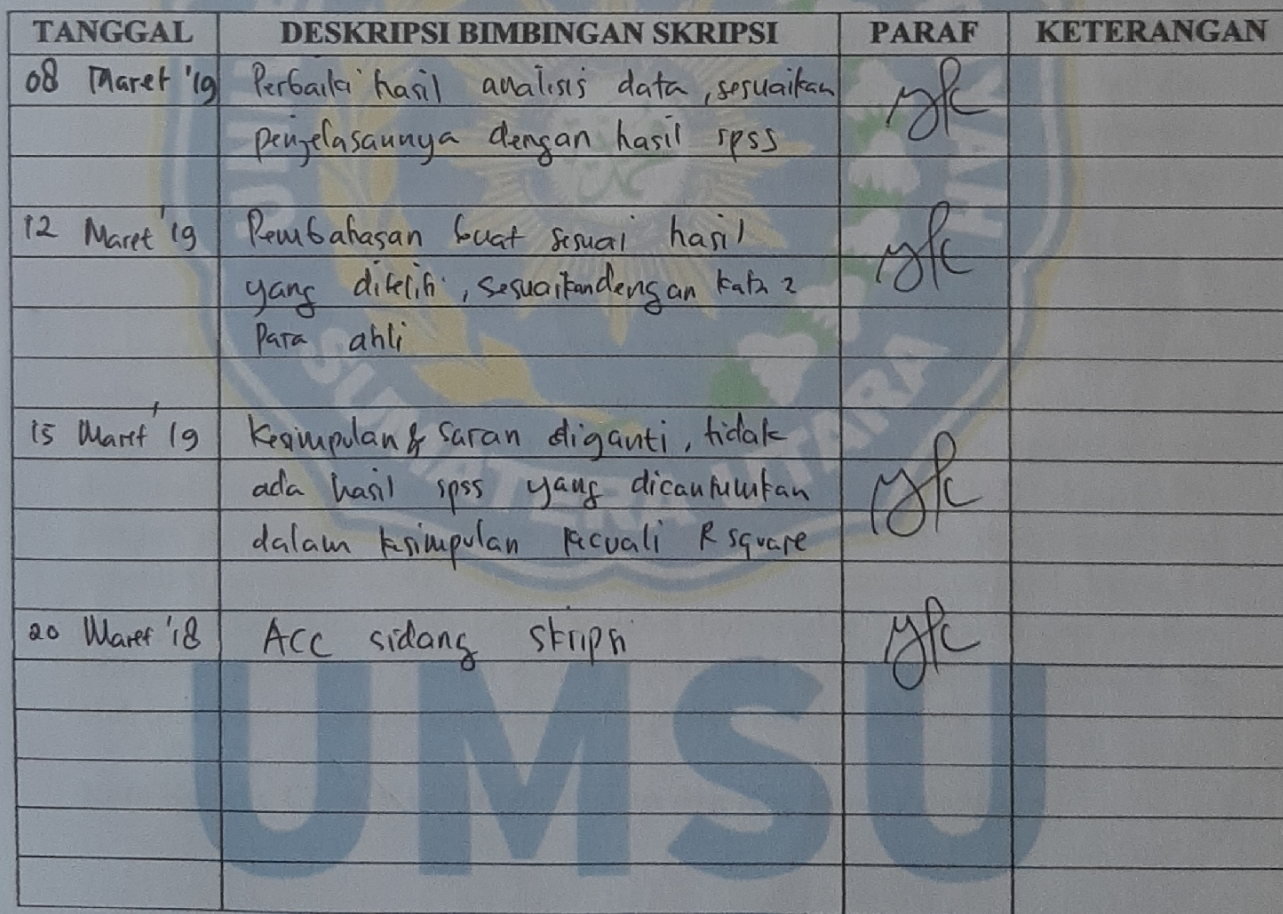 TANGGAL DESKRIPSI BIMBINGAN SKRIPSI PARAF KETERANGAN
08 Maret '19 Perbaiki hasil analisis data, sesuaikan
penjelasannya dengan hasil spss
12 Maret '19 Pembahasan buat sesuai hasil
yang diteliti, sesuaikan dengan kata2
Para ahli
15 Maret '19 Kesimpulan & saran diganti, tidak
ada hasil spss yang dicantumkan
dalam kesimpulan kecuali R square
20 Maret '18 ACC sidang skripsi
SUMATERA UTARA
UMSU